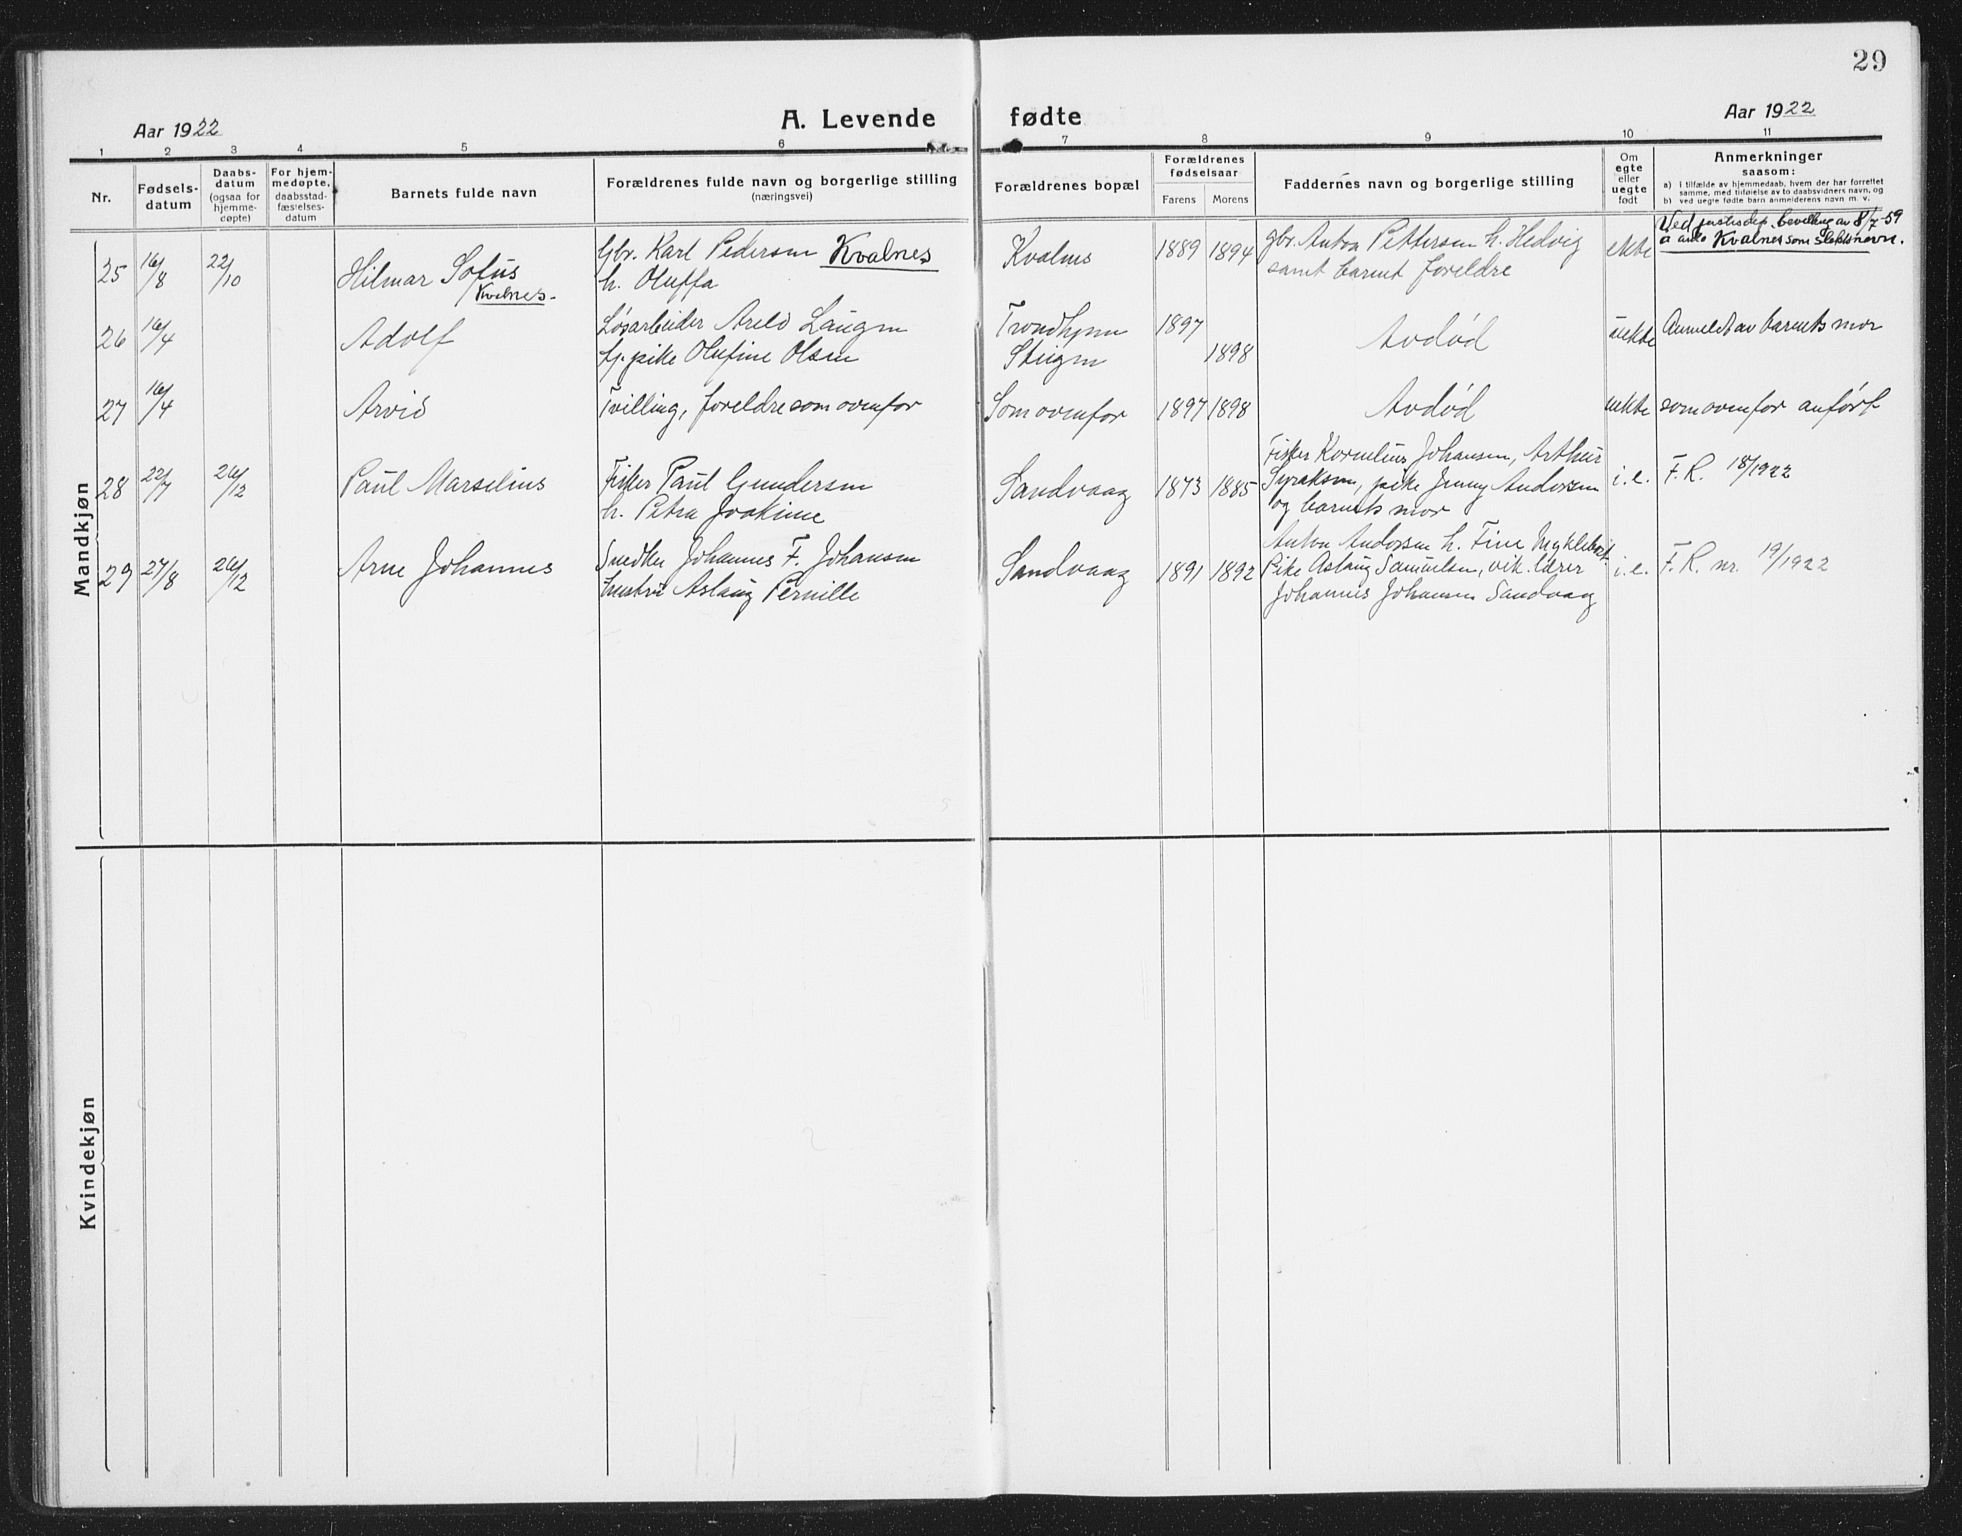 29
Aar 1922
A. Levende fødte
Aar 1922
1 2 3 4 5 6 7 8 9 10 11
Nr.
Fødsels-
datum
Daabs-
datum
(ogsaa for
hjemme-
døpte)
For hjem-
medøpte,
daabsstad-
fæstelses-
datum
Barnets fulde navn
Forældrenes fulde navn og borgerlige stilling
(næringsvei)
Forældrenes bopæl
Forældrenes
fødselsaar
Farens Morens
Faddernes navn og borgerlige stilling
Om
egte
eller
uegte
født
Anmerkninger
saasom:
a) I tilfælde av hjemmedaab, hvem der har forrettet
samme, med tilføielse av to daabsvidners navn, og
b) ved uegte fødte barn anmelderens navn m. v.
Mandkjøn
25 16/8 22/10 Hilmar Sofus
Kvalnes.
Gbr. Karl Pedersen Kvalnes
h. Oluffa
Kvalnes 1889 1894
gbr. Anton Pettersen h. Hedvig
samt barnet foreldre
ekte
Ved justisdep. bevilling av 8/7-59
å anta Kvalnes som slektsnavn.
26 16/4 Adolf
Løsarbeider Areld Laugen
pike Olufine Olsen
Trondhjem
Steigen
1897
1898
Avdød
uekte
Anmeldt av barnets mor
27 16/4 Arvid
Tvilling, foreldre som ovenfor
Som ovenfor 1897 1898
Avdød
uekte
som ovenfor anført
28 22/7 26/12 Paul Marselius
Fisker Paul Gundersen
h. Petra Joakime
Sandvaag 1873 1885
Fisker Kornelius Johansen, Arthur
pike Jenny Andersen
og barnets mor
i.e.
F.R. 18/1922
29 27/8 26/12 Arne Johannes
Snedker Johannes F. Johansen
hustru Aslaug Pernille
Sandvaag 1891 1892
Anton Andersen h. Fine Myklebost
Pike Aslaug Samuelsen, vik. lærer
Johannes Johansen Sandvaag
i.e.
F.R. nr. 19/1922
Kvindekjøn